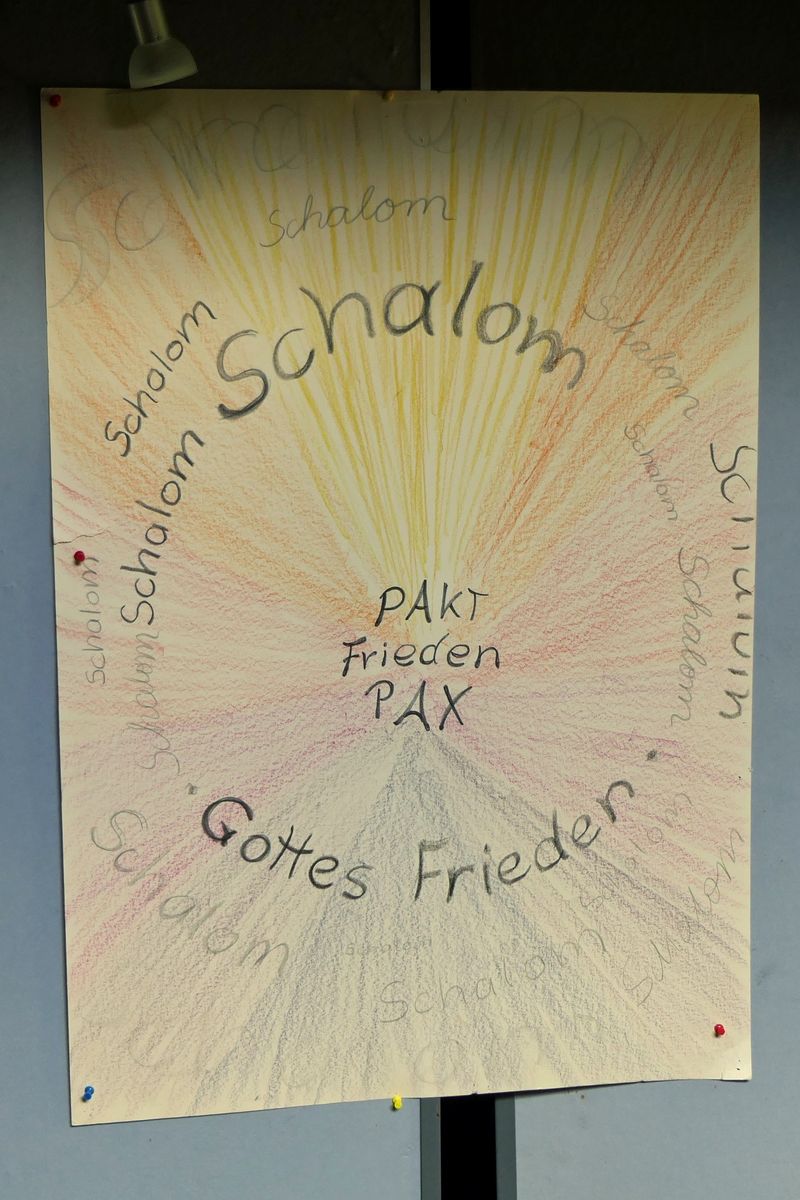 Schalom
Schalom
Schalom
Schalom
Schalom
Schalom
Schalom
Schalom
Schalom
Schalom
PAKT
Frieden
PAX
Gottes Frieden
Schalom
Schalom
Schalom